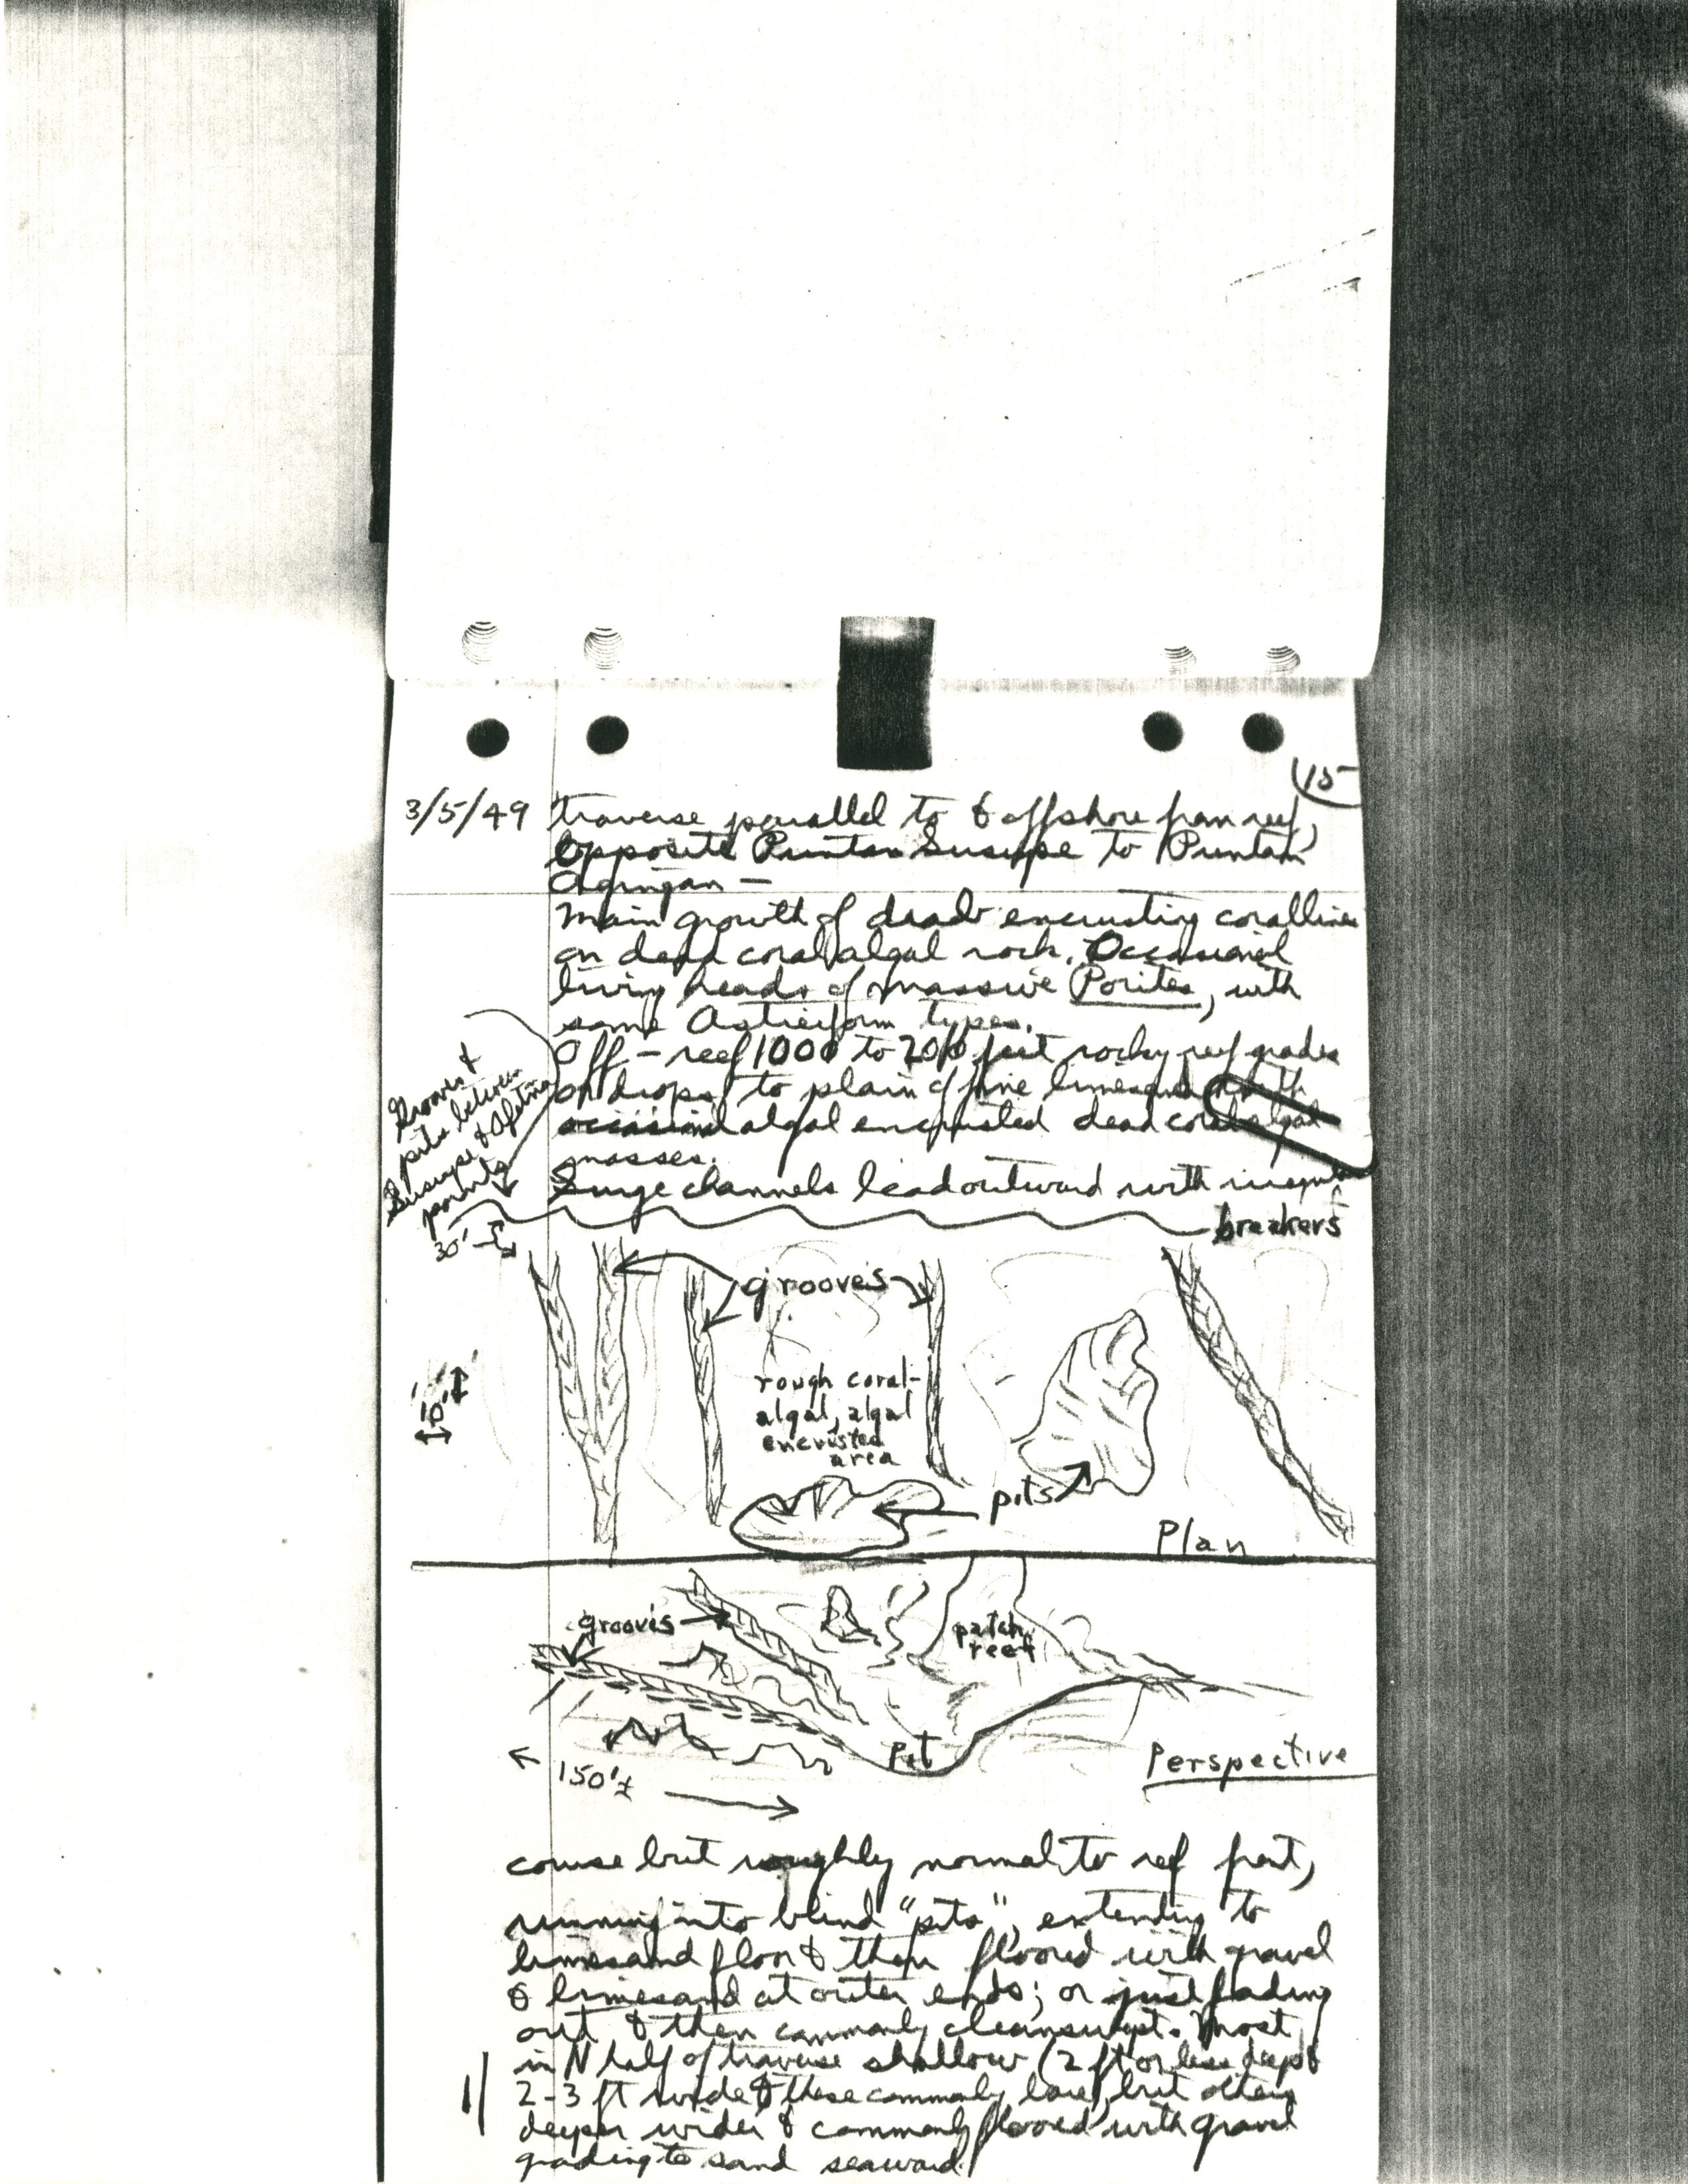 15
3/5/49 Traverse parallel to & offshore from reef,
opposite Puntan Susupe to Puntan
Agingan —
Main growth of encrusting corallines
on dead coral algal rock. Occasional
living heads of massive Porites, with
some Astreiform types.
Off-reef 1000 to 2000 feet rocky reef grades
or drops to plain of fine limesand with
occasional algal encrusted dead coral algal
masses.
Surge channels lead outward with irregular
Grooves &
pits between
Susupe & Afetna
points
breakers
30'
grooves
10'
rough coral-
algal, algal
encrusted
area
pits
Plan
grooves
patch
reef
Pit
150'±
Perspective
course but roughly normal to reef front,
running into blind "pits", extending to
limesand floor & then floored with gravel
& limesand at outer ends; or just fading
out & then commonly cleanswept. Most
in N half of traverse shallow (2 ft or less deep &
2-3 ft wide & these commonly bare, but others
deeper wider & commonly floored with gravel
grading to sand seaward.